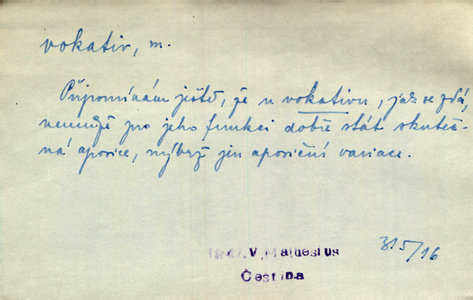 vokativ, m.
Připomínám ještě, že u vokativu, jak se zdá,
nemůže pro jeho funkci dobře stát skuteč-
ná aposice, nýbrž jen aposiční variace.
1947. V. Mathesius
Čeština
315/16